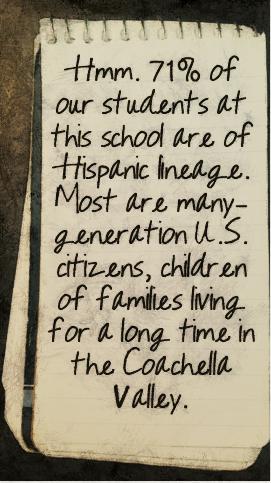 Hmm. 71% of
our students at
this school are of
Hispanic lineage.
Most are many-
generation U.S.
citizens, children
of families living
for a long time in
the Coachella
Valley.